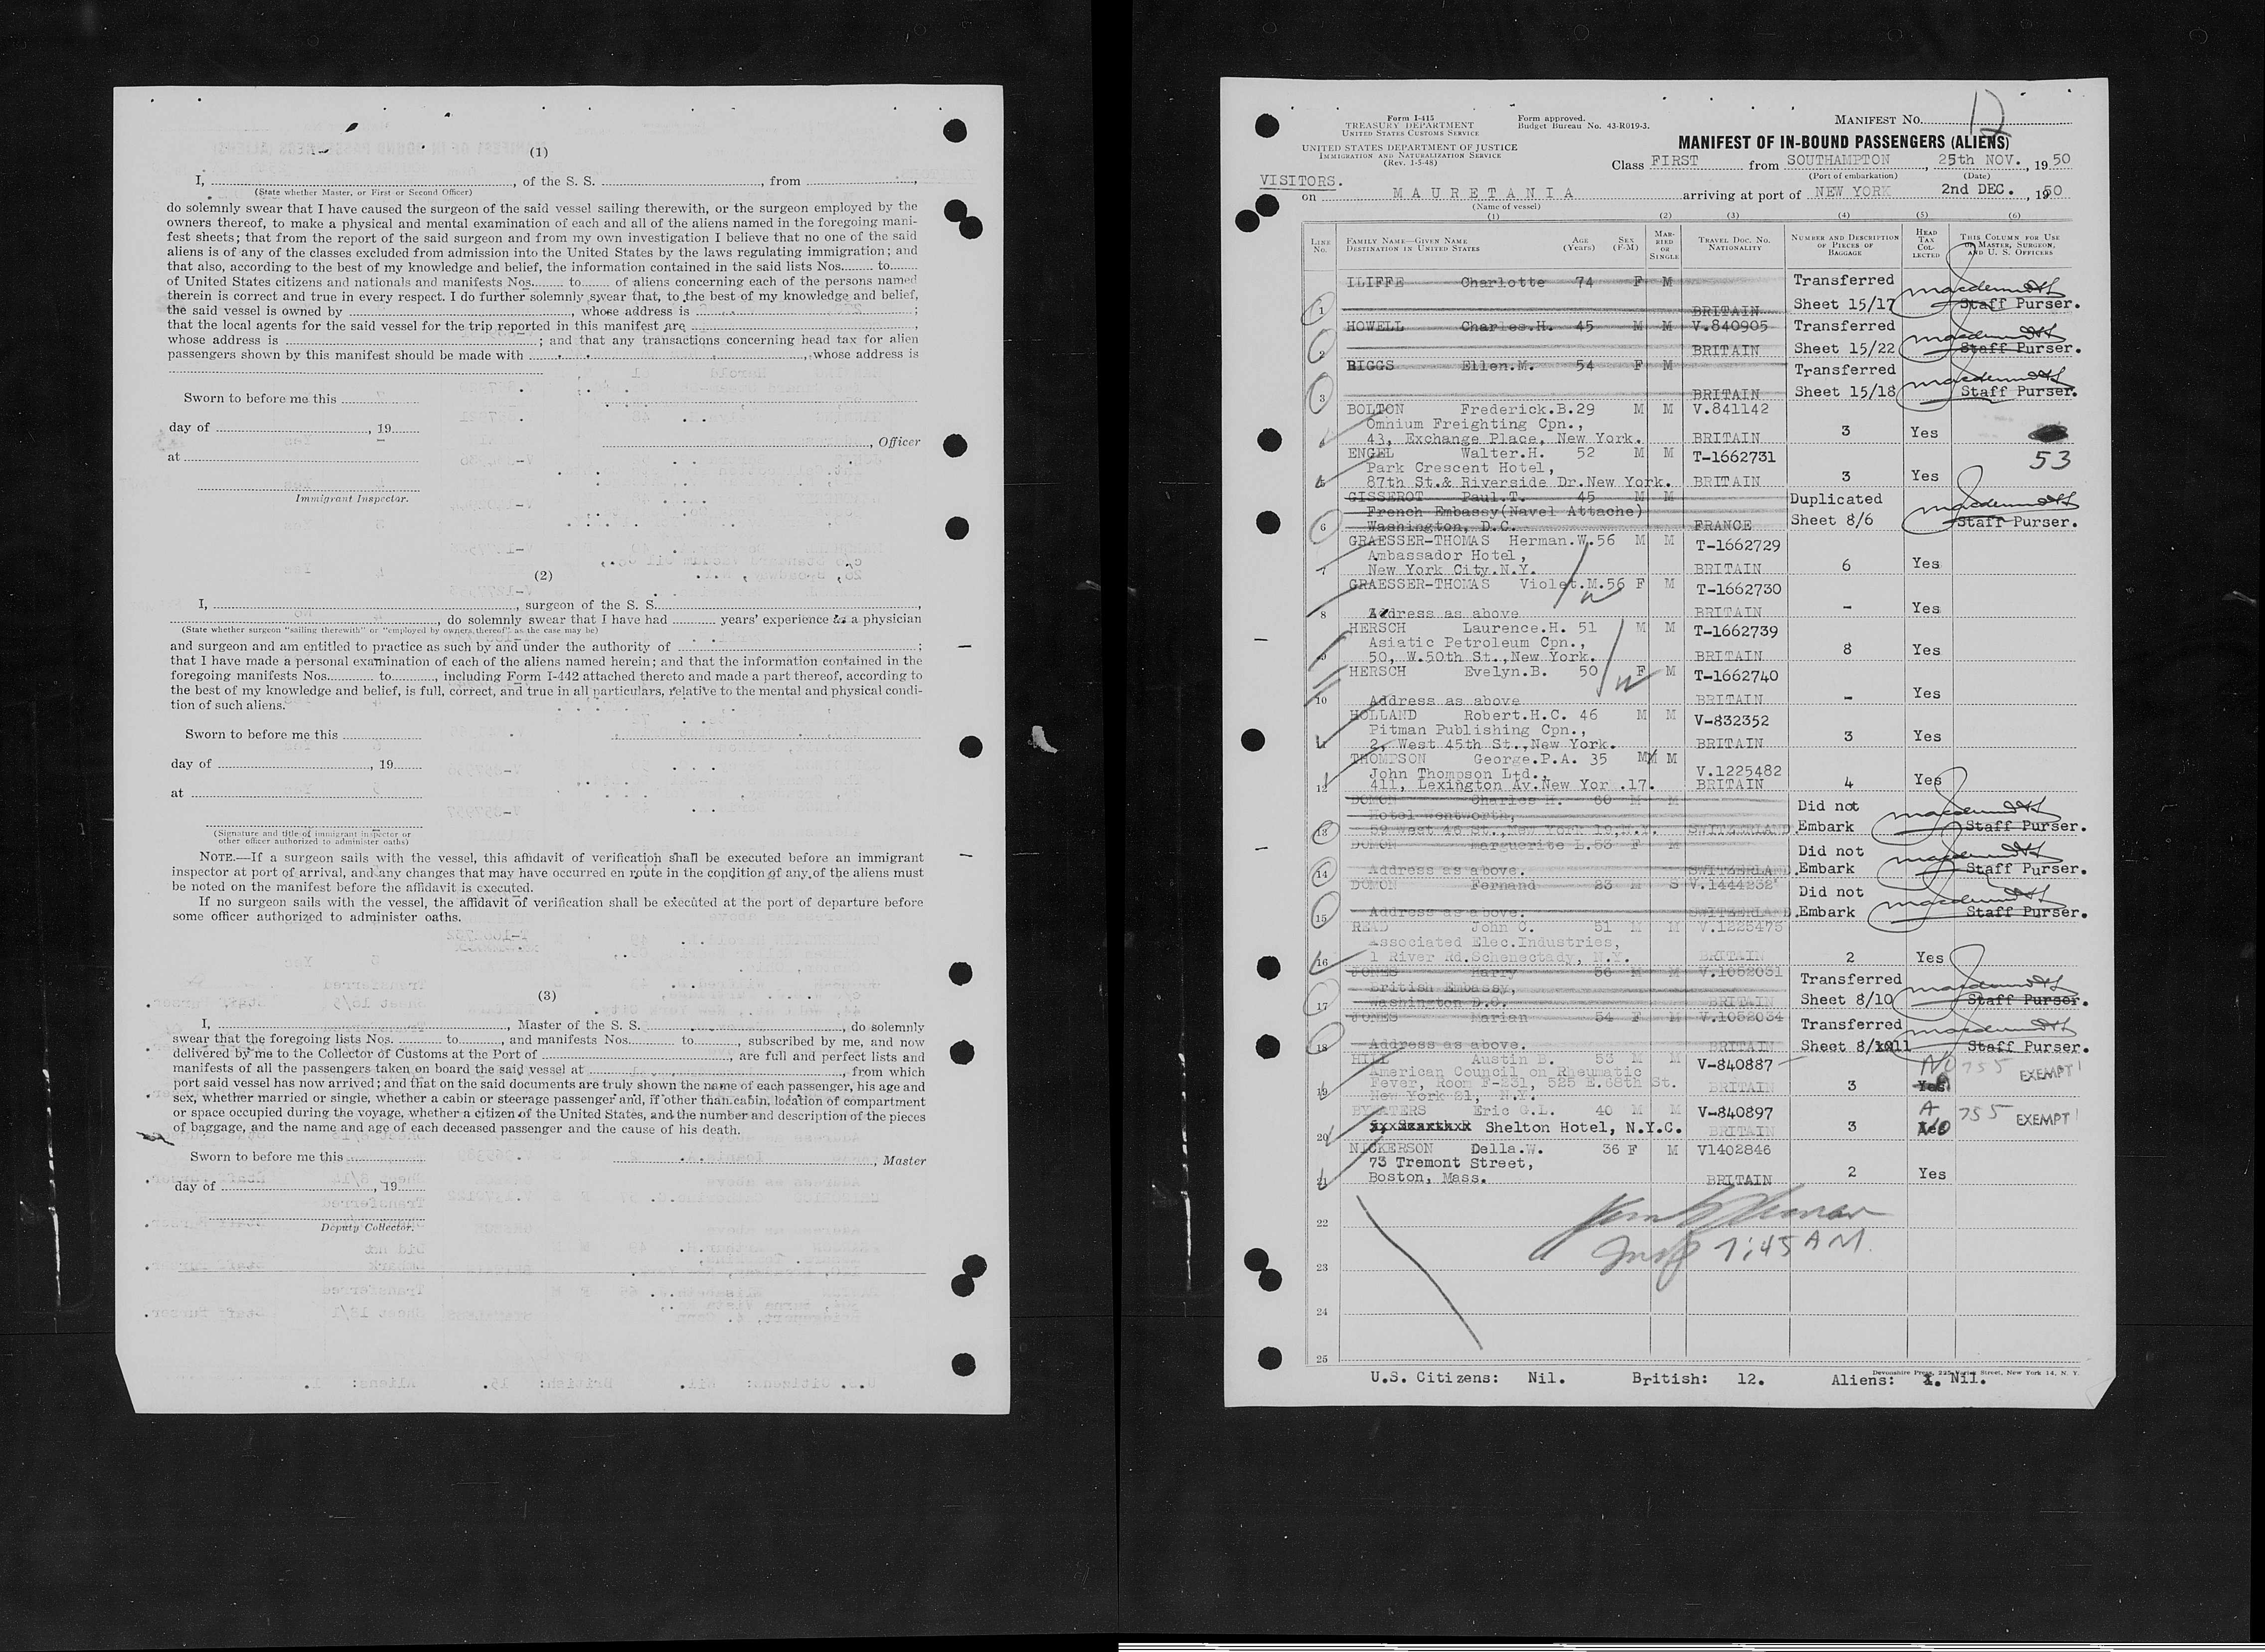 (1)
I, , of the S. S. , from ,
(State whether Master, or First or Second Officer)
do solemnly swear that I have caused the surgeon of the said vessel sailing therewith, or the surgeon employed by the
owners thereof, to make a physical and mental examination of each and all of the aliens named in the foregoing mani-
fest sheets; that from the report of the said surgeon and from my own investigation I believe that no one of the said
aliens is of any of the classes excluded from admission into the United States by the laws regulating immigration; and
that also, according to the best of my knowledge and belief, the information contained in the said lists Nos. to
of United States citizens and nationals and manifests Nos. to of aliens concerning each of the persons named
therein is correct and true in every respect. I do further solemnly swear that, to the best of my knowledge and belief,
the said vessel is owned by , whose address is ;
that the local agents for the said vessel for the trip reported in this manifest are ,
whose address is ; and that any transactions concerning head tax for alien
passengers shown by this manifest should be made with , whose address is
Sworn to before me this
day of , 19
, Officer
at
Immigrant Inspector.
(2)
I, , surgeon of the S. S. ,
, do solemnly swear that I have had years' experience as a physician
(State whether surgeon "sailing therewith" or "employed by owners thereof" as the case may be)
and surgeon and am entitled to practice as such by and under the authority of ;
that I have made a personal examination of each of the aliens named herein; and that the information contained in the
foregoing manifests Nos. to , including Form I-442 attached thereto and made a part thereof, according to
the best of my knowledge and belief, is full, correct, and true in all particulars, relative to the mental and physical condi-
tion of such aliens.
Sworn to before me this
day of , 19
at
(Signature and title of immigrant inspector or
other officer authorized to administer oaths)
NOTE.—If a surgeon sails with the vessel, this affidavit of verification shall be executed before an immigrant
inspector at port of arrival, and any changes that may have occurred en route in the condition of any of the aliens must
be noted on the manifest before the affidavit is executed.
If no surgeon sails with the vessel, the affidavit of verification shall be executed at the port of departure before
some officer authorized to administer oaths.
(3)
I, , Master of the S. S. , do solemnly
swear that the foregoing lists Nos. to , and manifests Nos. to , subscribed by me, and now
delivered by me to the Collector of Customs at the Port of , are full and perfect lists and
manifests of all the passengers taken on board the said vessel at , from which
port said vessel has now arrived; and that on the said documents are truly shown the name of each passenger, his age and
sex, whether married or single, whether a cabin or steerage passenger and, if other than cabin, location of compartment
or space occupied during the voyage, whether a citizen of the United States, and the number and description of the pieces
of baggage, and the name and age of each deceased passenger and the cause of his death.
Sworn to before me this
, Master
day of , 19
Deputy Collector.
Form I-415
TREASURY DEPARTMENT
UNITED STATES CUSTOMS SERVICE
Form approved.
Budget Bureau No. 43-R019-3.
MANIFEST No. 12
UNITED STATES DEPARTMENT OF JUSTICE
IMMIGRATION AND NATURALIZATION SERVICE
(Rev. 1-5-48)
MANIFEST OF IN-BOUND PASSENGERS (ALIENS)
Class FIRST from SOUTHAMPTON , 25th NOV. , 1950
(Port of embarkation) (Date)
VISITORS.
on MAURETANIA arriving at port of NEW YORK 2nd DEC. , 1950
(Name of vessel)
(1) (2) (3) (4) (5) (6)
LINE No. FAMILY NAME—GIVEN NAME DESTINATION IN UNITED STATES AGE (Years) SEX (F-M) MARRIED OR SINGLE TRAVEL DOC. No. NATIONALITY NUMBER AND DESCRIPTION OF PIECES OF BAGGAGE HEAD TAX COLLECTED THIS COLUMN FOR USE OF MASTER, SURGEON, AND U. S. OFFICERS
ILIFFE Charlotte 74 F M Transferred
1 BRITAIN Sheet 15/17 Staff Purser.
HOWELL Charles.H. 45 M M V.840905 Transferred
2 BRITAIN Sheet 15/22 Staff Purser.
RIGGS Ellen.M. 54 F M Transferred
3 BRITAIN Sheet 15/18 Staff Purser.
BOLTON Frederick.B.29 M M V.841142
Omnium Freighting Cpn.,
4 43, Exchange Place, New York. BRITAIN 3 Yes
ENGEL Walter.H. 52 M M T-1662731 53
Park Crescent Hotel,
5 87th St.& Riverside Dr.New York. BRITAIN 3 Yes
GISSEROT Paul.T. 45 M M Duplicated
French Embassy(Navel Attache)
6 Washington, D.C. FRANCE Sheet 8/6 Staff Purser.
GRAESSER-THOMAS Herman.W.56 M M T-1662729
Ambassador Hotel,
7 New York City.N.Y. BRITAIN 6 Yes
GRAESSER-THOMAS Violet.M.56 F M T-1662730
8 Address as above BRITAIN - Yes
HERSCH Laurence.H. 51 M M T-1662739
Asiatic Petroleum Cpn.,
9 50, W.50th St.,New York. BRITAIN 8 Yes
HERSCH Evelyn.B. 50 F M T-1662740
10 Address as above BRITAIN - Yes
HOLLAND Robert.H.C. 46 M M V-832352
Pitman Publishing Cpn.,
11 2, West 45th St.,New York. BRITAIN 3 Yes
THOMPSON George.P.A. 35 M M V.1225482
John Thompson Ltd.,
12 411, Lexington Av.New Yor .17. BRITAIN 4 Yes
DOMON Charles H. 60 M M Did not
Hotel Wentworth,
13 59 West 46 St.,New York 19,N.Y. SWITZERLAND. Embark Staff Purser.
DOMON Marguerite L.53 F M Did not
14 Address as above. SWITZERLAND. Embark Staff Purser.
DOMON Fernand 23 M S V.1444232 Did not
15 Address as above. SWITZERLAND. Embark Staff Purser.
READ John C. 51 M M V.1225475
Associated Elec.Industries,
16 1 River Rd.Schenectady, N.Y. BRITAIN 2 Yes
JONES Harry 56 M M V.1052031 Transferred
British Embassy,
17 Washington D.C. BRITAIN Sheet 8/10 Staff Purser.
JONES Marian 54 F M V.1052034 Transferred
18 Address as above. BRITAIN Sheet 8/11 Staff Purser.
HILL Austin B. 53 M M V-840887 NO 755 EXEMPT
American Council on Rheumatic
Fever, Room F-231, 525 E.68th St.
19 New York 21, N.Y. BRITAIN 3 Yes
BYWATERS Eric G.L. 40 M M V-840897 755 EXEMPT
20 Shelton Hotel, N.Y.C. BRITAIN 3 No
NICKERSON Della.W. 36 F M V1402846
73 Tremont Street,
21 Boston, Mass. BRITAIN 2 Yes
22
7:45 AM
23
24
25
Devonshire Press, 225 Varick Street, New York 14, N. Y.
U.S. Citizens: Nil. British: 12. Aliens: Nil.